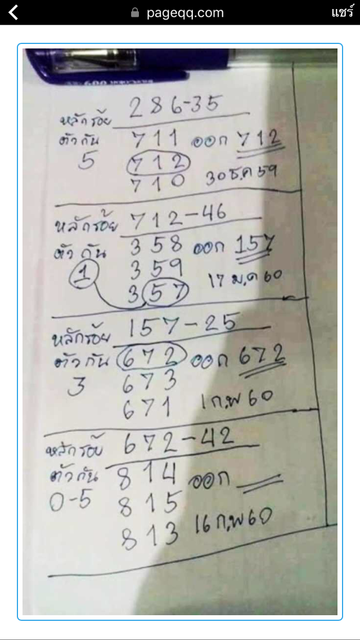 pageqq.com
แชร์
286-35
หลักร้อย
ตัวกัน 711 ออก 712
5 712
710 30 ธ.ค 59
712-46
หลักร้อย
ตัวกัน 358 ออก 157
1 359
357 17 ม.ค 60
157-25
หลักร้อย
ตัวกัน 672 ออก 672
3 673
671 1 ก.พ 60
672-42
หลักร้อย
ตัวกัน 814 ออก
0-5 815
813 16 ก.พ 60